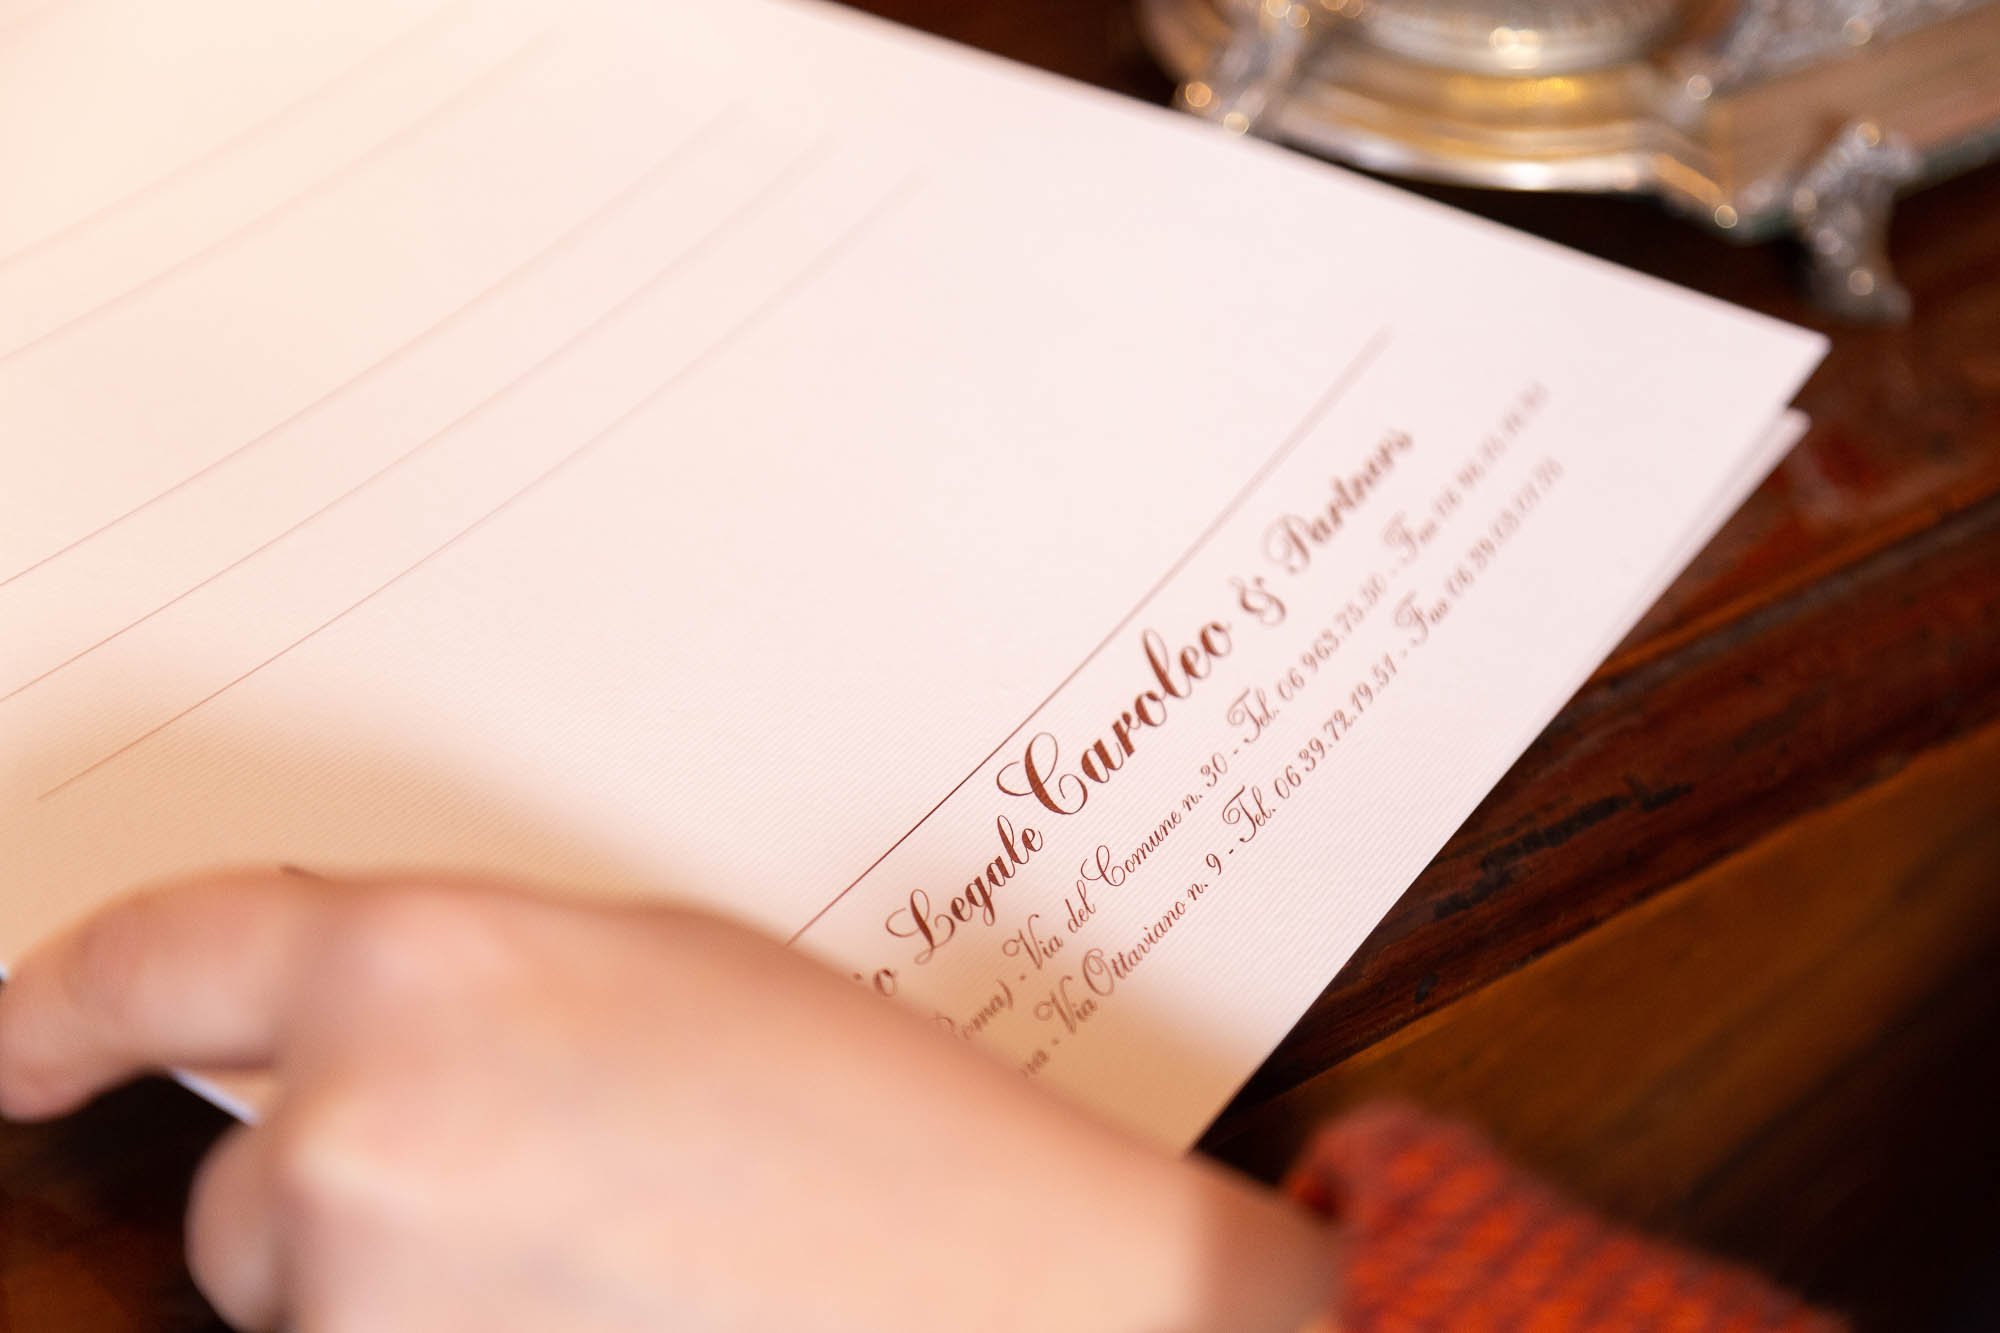 Legale Caroleo & Partners
Roma) - Via del Comune n. 30 - Tel. 06 963.75.50 - Fax
- Via Ottaviano n. 9 - Tel. 06 39.72.19.51 - Fax 06 39.03.01.31